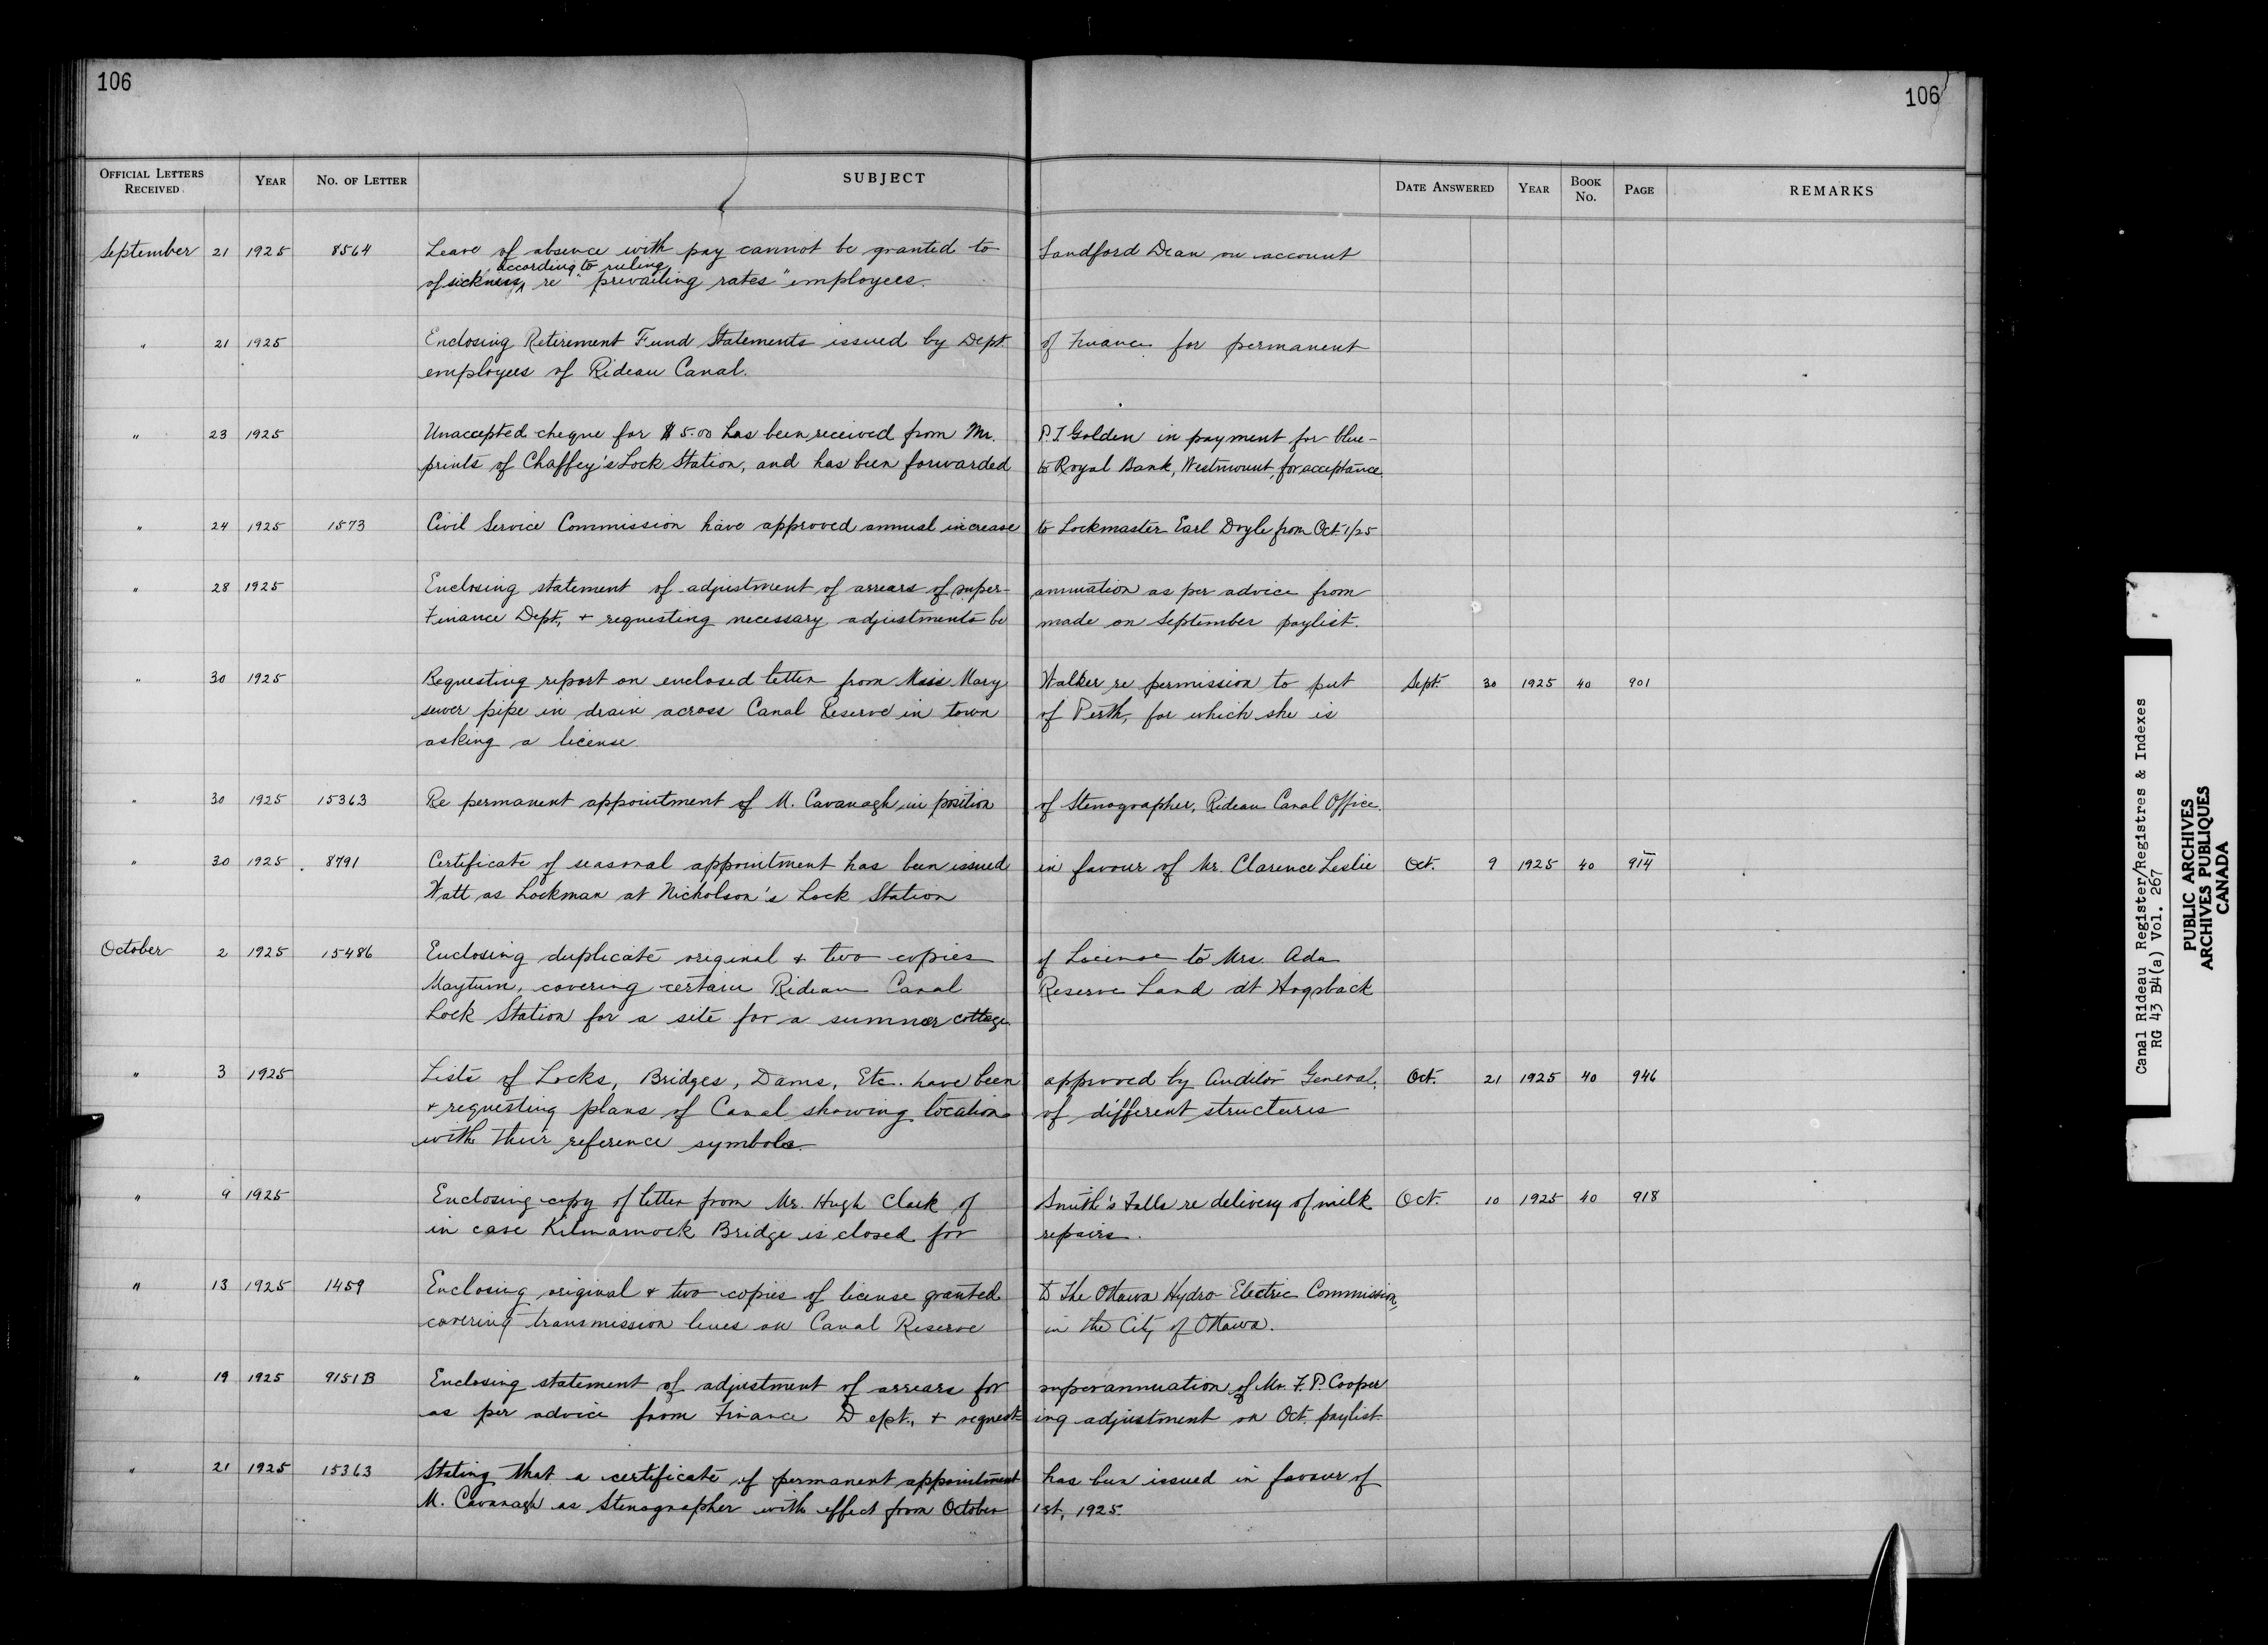 106
106
OFFICIAL LETTERS RECEIVED YEAR NO. OF LETTER SUBJECT DATE ANSWERED YEAR BOOK NO. PAGE REMARKS
September 21 1925 8564 Leave of absence with pay cannot be granted to Sandford Dean on account
according to ruling
of sickness, re "prevailing rates" employees.
" 21 1925 Enclosing Retirement Fund Statements issued by Dept. of Finance for permanent
employees of Rideau Canal.
" 23 1925 Unaccepted cheque for $5.00 has been received from Mr. P.J Golden in payment for blue-
prints of Chaffey's Lock Station, and has been forwarded to Royal Bank, Westmount, for acceptance.
" 24 1925 1573 Civil Service Commission have approved annual increase to Lockmaster Earl Doyle from Oct. 1/25
" 28 1925 Enclosing statement of adjustment of arrears of super- annuation as per advice from
Finance Dept., + requesting necessary adjustments be made on September paylist.
" 30 1925 Requesting report on enclosed letter from Miss Mary Walker re permission to put Sept. 30 1925 40 901
sewer pipe in drain across Canal Reserve in town of Perth, for which she is
asking a license.
" 30 1925 15363 Re permanent appointment of M. Cavanagh in position of Stenographer, Rideau Canal Office.
" 30 1925 8791 Certificate of seasonal appointment has been issued in favour of Mr. Clarence Leslie Oct. 9 1925 40 914
Watt as Lockman at Nicholson's Lock Station
October 2 1925 15486 Enclosing duplicate original + two copies of License to Mrs. Ada
Maytum, covering certain Rideau Canal Reserve Land at Hogsback
Lock Station for a site for a summer cottage.
" 3 1925 Lists of Locks, Bridges, Dams, Etc. have been approved by Auditor General, Oct. 21 1925 40 946
+ requesting plans of Canal showing location of different structures
with their reference symbols.
" 9 1925 Enclosing copy of letter from Mr. Hugh Clark of Smith's Falls re delivery of milk Oct. 10 1925 40 918
in case Kilmarnock Bridge is closed for repairs.
" 13 1925 1459 Enclosing original + two copies of license granted to The Ottawa Hydro Electric Commission,
covering transmission lines on Canal Reserve in the City of Ottawa.
" 19 1925 9151B Enclosing statement of adjustment of arrears for superannuation of Mr. F. P. Cooper
as per advice from Finance Dept., + request- ing adjustment on Oct. paylist
" 21 1925 15363 Stating that a certificate of permanent appointment has been issued in favour of
M. Cavanagh as Stenographer with effect from October 1st, 1925.
Canal Rideau Register/Registres & Indexes
RG 43 B4(a) Vol. 267
PUBLIC ARCHIVES
ARCHIVES PUBLIQUES
CANADA